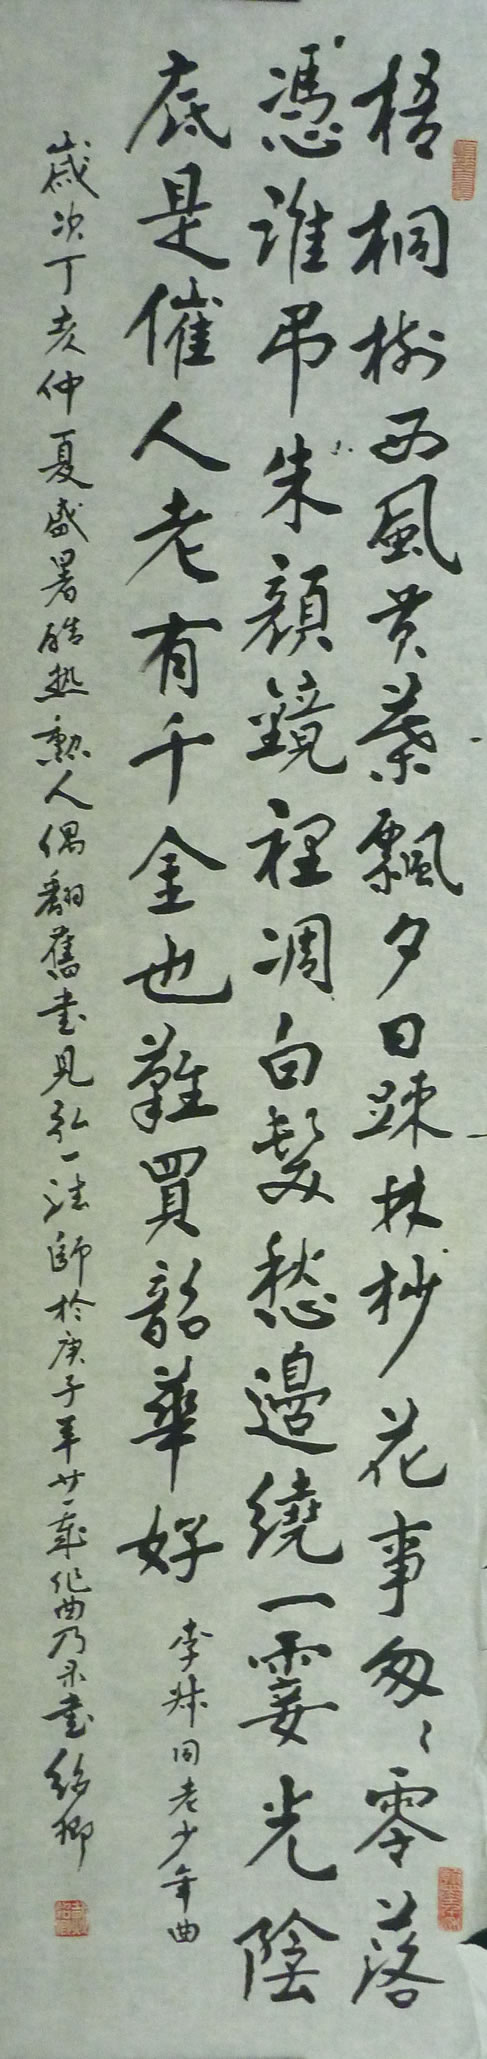 梧桐樹西風黄葉飄夕日疎林杪花事匆〻零落
憑誰吊朱顔鏡裡凋白髮愁邊繞一霎光陰
底是催人老有千金也難買韶華好
李叔同老少年曲
歲次丁亥仲夏盛暑酷热熏人偶翻舊書見弘一法師於庚子年廿一歲作曲乃录書 紹卿